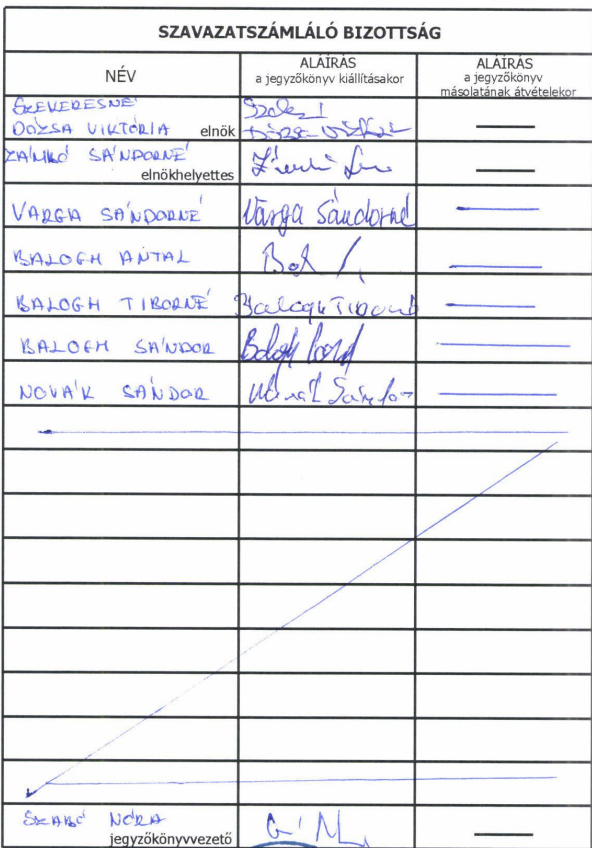 SZAVAZATSZÁMLÁLÓ BIZOTTSÁG
NÉV
ALÁÍRÁS
a jegyzőkönyv kiállításakor
ALÁÍRÁS
a jegyzőkönyv
másolatának átvételekor
SZEVERESNÉ
DÓZSA VIKTÓRIA elnök
SÁNDORNÉ
elnökhelyettes
VARGA SÁNDORNÉ Varga Sándorné
BALOGH ANTAL
BALOGH TIBORNÉ Balogh Tiborné
BALOGH SÁNDOR Balogh
NOVÁK SÁNDOR Novák Sándor
SZABÓ NÓRA
jegyzőkönyvvezető